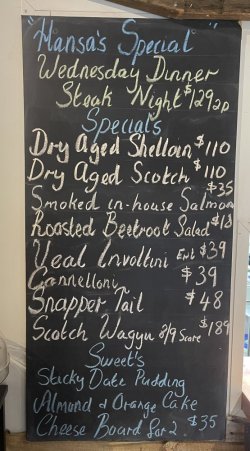 "Hansa's Special"
Wednesday Dinner
Steak Night $129 2p
Specials
Dry Aged Shelloin $110
Dry Aged Scotch $110
Smoked in-house Salmon $35
Roasted Beetroot Salad $18
Veal Involtini Ent $39
Cannelloni $39
Snapper Tail $48
Scotch Wagyu 8/9 Score $189
Sweet's
Sticky Date Pudding
Almond & Orange Cake
Cheese Board for 2. $35